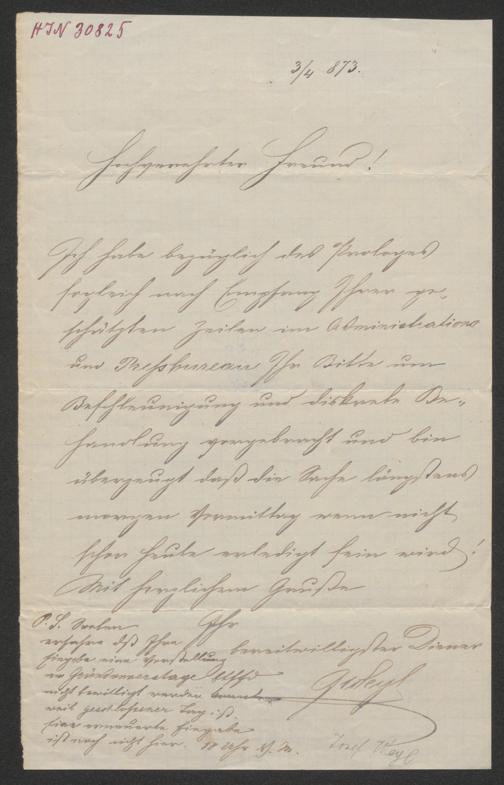 HIN 30825
3/4 873.
Hochverehrter Freund!
Ich habe bezüglich des Prologes
sogleich nach Empfang Ihrer ge-
schätzten Zeilen im Administrations
und Pressbureau Ihr Bitte um
Beschleunigung und diskrete Be-
handlung vorgebracht und bin
überzeugt daß die Sache längstens
morgen Vormittag wenn nicht
schon heute erledigt sein wird!
Mit herzlichem Gruße
Ihr
bereitwilligster Diener
JWeyl
P. S. Soeben
erfahre daß Ihre
Eingabe eine Vorstellung
am Gründonnerstage
nicht bewilligt werden konnte
weil geschlossener Tag ist.
Eine erneuerte Eingabe
ist noch nicht hier. Uhr V. M.
Josef Weyl